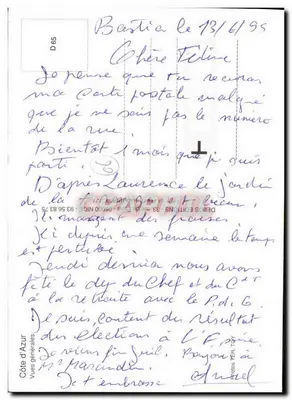 Bastia le 13/6/99
Chère
Je pense que tu recevras
ma carte postale malgré
que je ne sais pas le numéro
de la rue.
Bientôt 1 mois que je suis
parti.
D'après Laurence le jardin
de la
Ils mangent des fraises
Ici depuis une semaine le temps
est perturbé
Jeudi dernier nous avons
fêté le dep du Chef et du
à la retraite avec le P.d.G.
Je suis content du résultat
des élections à l'
Je reviens fin Juil. Bonjour à
Mr
Je t'embrasse
D 65
Côte d'Azur
Vues générales